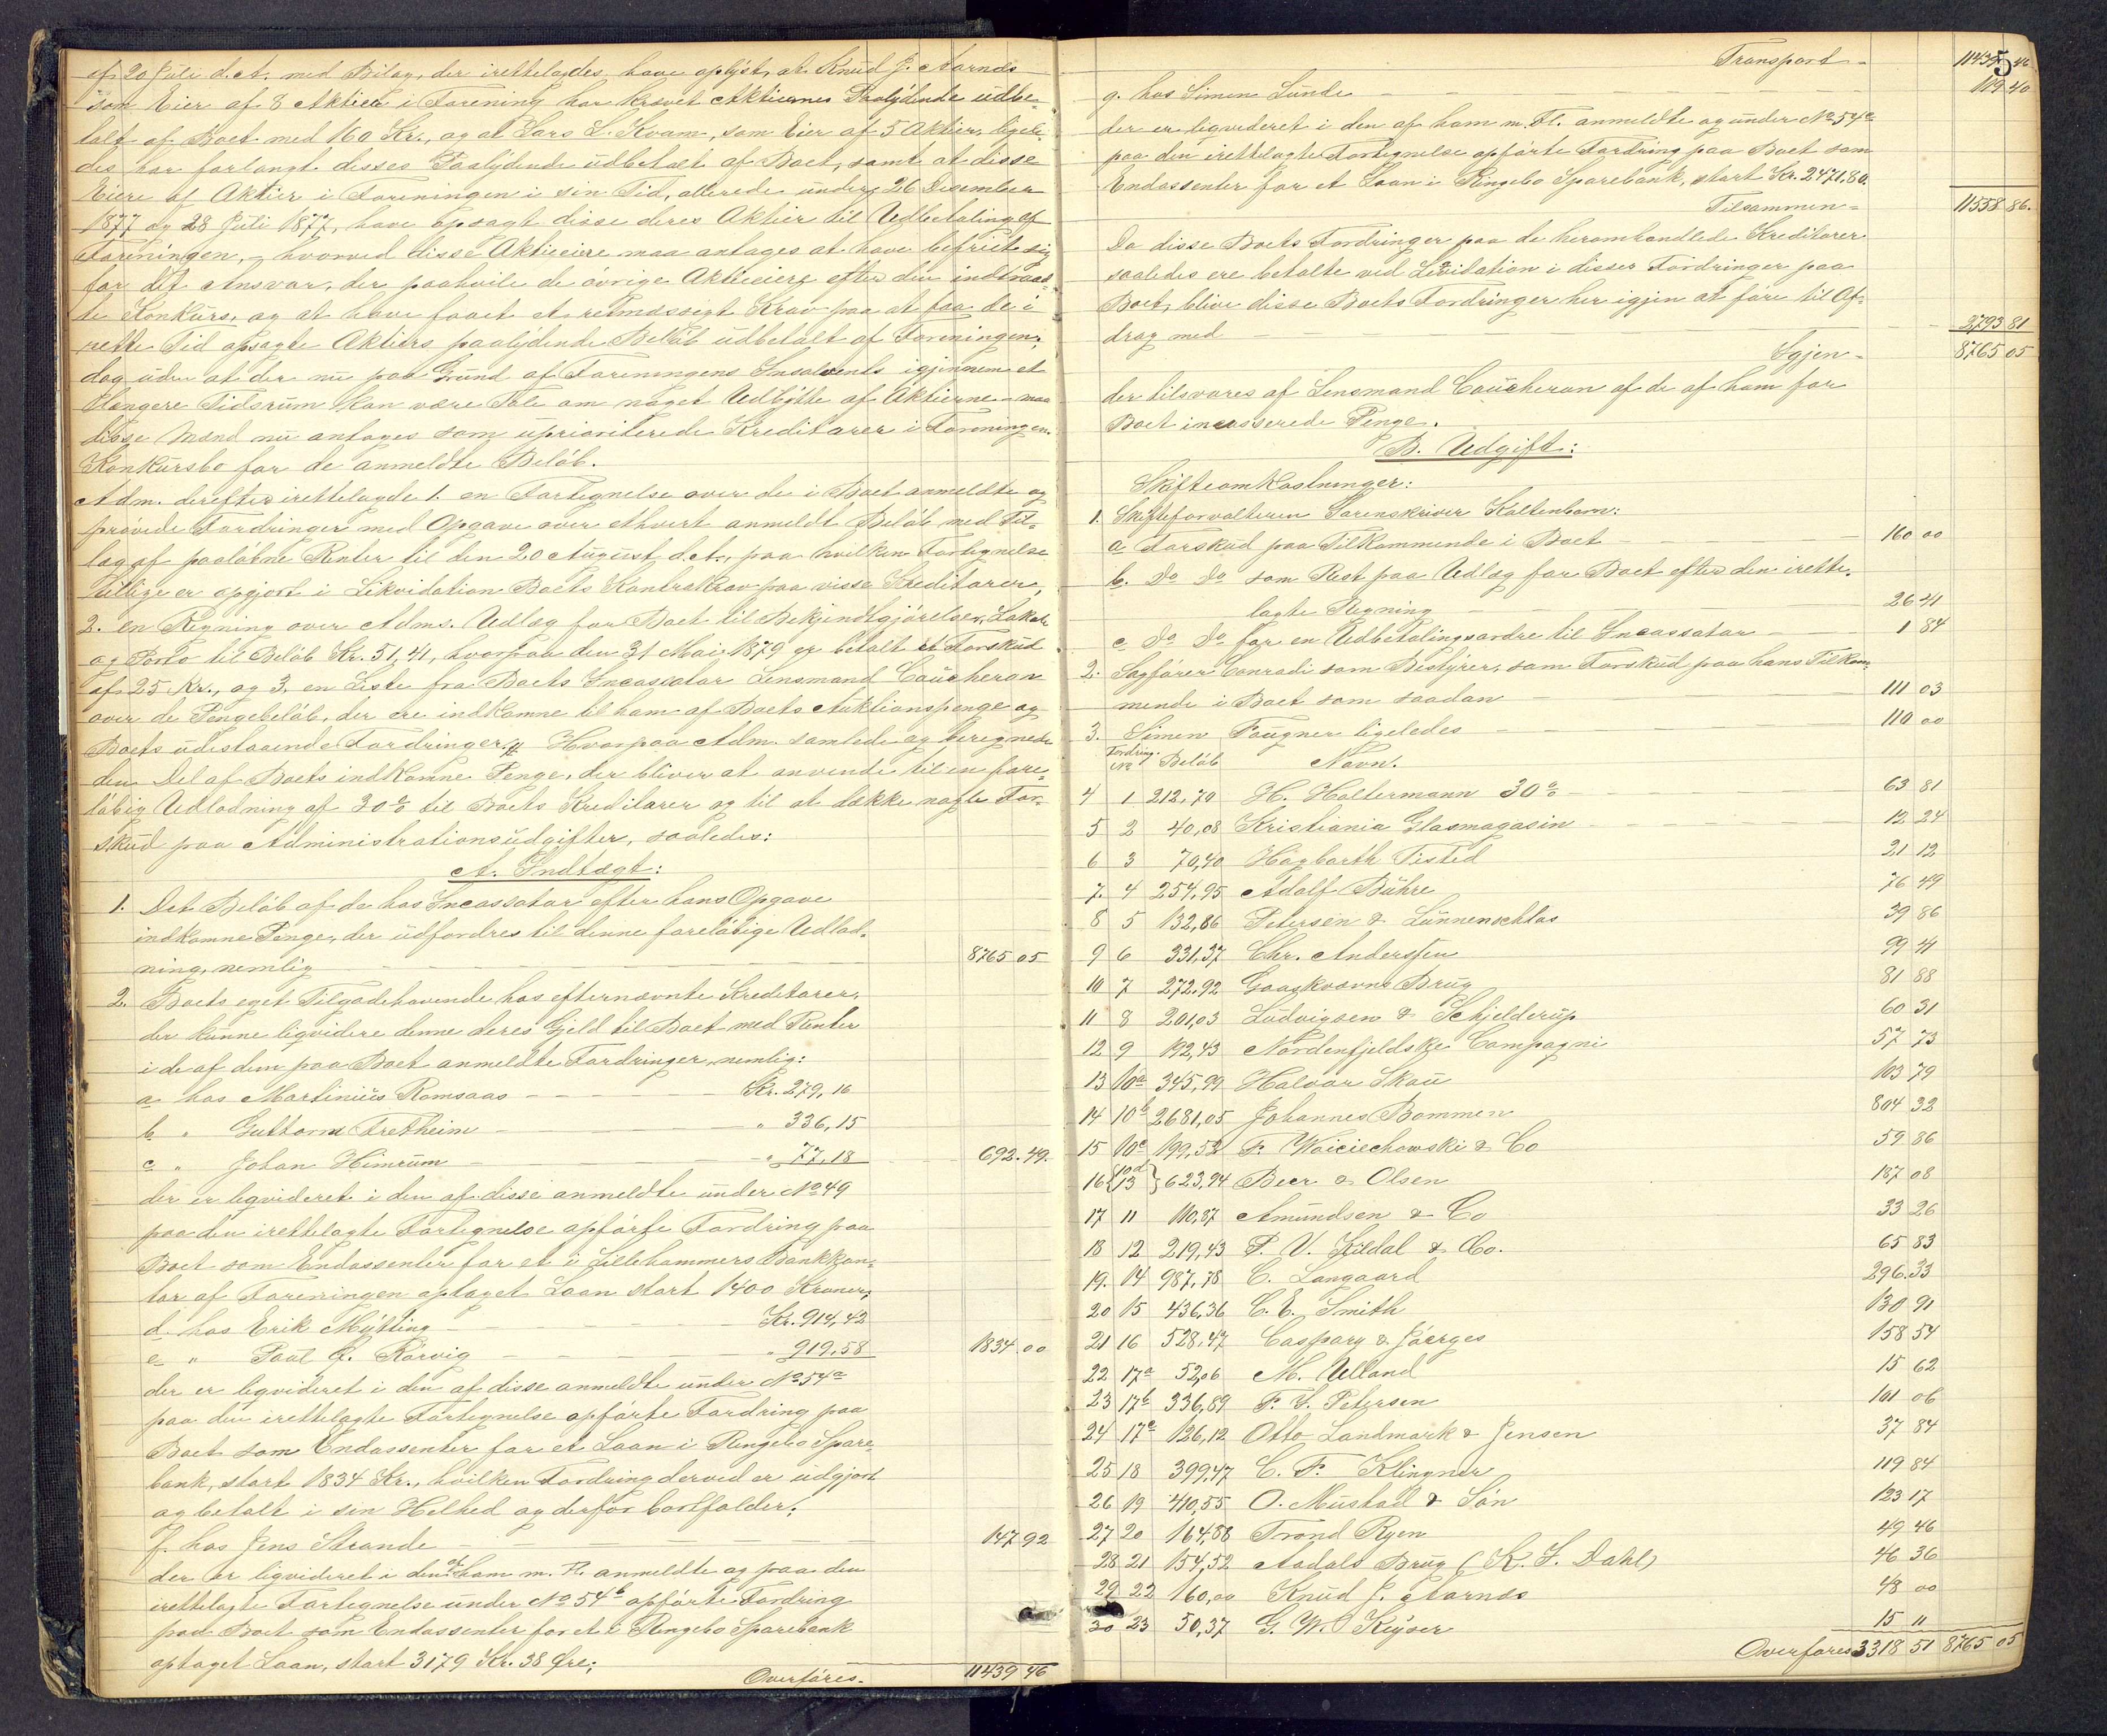 af 20 Juli d. A. med Bilag, der irettelagdes, have oplyst, at Knud J. Aarnes
som Eier af 8 Aktier i Forening har krævet Aktiernes Paalydende udbe-
talt af Boet med 160 Kr., og at Lars L. Kvam, som Eier af 5 Aktier, ligele-
des har forlangt disses Paalydende udbetalt af Boet, samt at disse
Eiere af Aktier i Foreningen i sin Tid, allerede under 26 Desember
1877 og 28 Juli 1877, have opsagt disse deres Aktier til Udbetaling af
Foreningen, - hvorved disse Aktieeiere maa antages at have befriet sig
for det Ansvar, der paahvile de øvrige Aktieeiere efter den indtraad-
te Konkurs, og at have faaet et retmæssigt Krav paa at faa de i
rette Tid opsagte Aktiers paalydende Beløb udbetalt af Foreningen;
dog uden at der nu paa Grund af Foreningens Insolvents igjennem et
længere Tidsrum kan være Tale om noget Udbytte af Aktierne - maa
disse Mænd nu antages som uprioriterede Kreditorer i Foreningens
Konkursbo for de anmeldte Beløb.
Adm. derefter irettelagde 1. en Fortegnelse over de i Boet anmeldte og
prøvede Fordringer med Opgave over ethvert anmeldt Beløb med Til-
læg af paaløbne Renter til den 20 August d. A., paa hvilken Fortegnelse
tillige er opgjort i Likvidation Boets Kontrakrav paa visse Kreditorer,
2. en Regning over Adms. Udlæg for Boet til Bekjendtgjørelser, Lokale
og Porto til Beløb Kr. 51,41, hvorpaa den 31 Mai 1879 er betalt et Forskud
af 25 Kr., og 3. en Liste fra Boets Incassator Lensmand Caucheron
over de Pengebeløb, der ere indkomne til ham af Boets Auktionspenge og
Boets udestaaende Fordringer. Hvorpaa Adm. samlede og beregnede
den Del af Boets indkomne Penge, der bliver at anvende til en fore-
løbig Udlodning af 30 % til Boets Kreditorer og til at dække nogle For-
skud paa Administrationsudgifter, saaledes:
A. Indtægt:
1. Det Beløb af de hos Incassator efter hans Opgave
indkomne Penge, der udfordres til denne foreløbige Udlod-
ning, nemlig 8765 05
2. Boets eget Tilgodehavende hos efternævnte Kreditorer,
der kunne ligvidere denne deres Gjeld til Boet med Renter
i de af dem paa Boet anmeldte Fordringer, nemlig:
a hos Martinius Romsaas Kr. 279,16
b " Guttorm Fretheim " 336,15
c " Johan Himrum " 77,18 692.49.
der er ligvideret i den af disse anmeldte under No 49
paa den irettelagte Fortegnelse opførte Fordring paa
Boet som Endossenter for et i Lillehammers Bankkon-
tor af Foreningen optaget Laan stort 1400 Kroner;
d. hos Erik Mytting Kr. 914,42
e " Paul G. Rørvig " 919,58 1834.00
der er ligvideret i den af disse anmeldte under No 54a
paa den irettelagte Fortegnelse opførte Fordring paa
Boet som Endossenter for et Laan i Ringebo Spare-
bank, stort 1834 Kr., hvilken Fordring derved er udgjort
og betalt i sin Helhed og derfor bortfalder;
f. hos Jens Strande 147 92
der er ligvideret i den af ham m. Fl. anmeldte og paa den
irettelagte Fortegnelse under No 54b opførte Fordring
paa Boet som Endossenter for et i Ringebo Sparebank
optaget Laan, stort 3179 Kr. 38 Øre;
Overføres. 11439 46
5
Transport 11439 46
g. hos Simen Lunde 119 40
der er ligvideret i den af ham m. Fl. anmeldte og under No 54c
paa den irettelagte Fortegnelse opførte Fordring paa Boet som
Endossenter for et Laan i Ringebo Sparebank, stort Kr. 2471,80.
Tilsammen 11558 86.
Da disse Boets Fordringer paa de heromhandlede Kreditorer
saaledes ere betalte ved Likvidation i disses Fordringer paa
Boet, blive disse Boets Fordringer her igjen at føre til Af-
drag med 2793 81
Igjen 8765 05
der tilsvares af Lensmand Caucheron af de af ham for
Boet incasserede Penge.
B. Udgift:
Skifteomkostninger:
1. Skifteforvalteren Sorenskriver Koltenborn:
a Forskud paa Tilkommende i Boet 160 00
b. Do Do som Rest paa Udlæg for Boet efter den irette-
lagte Regning 26 41
c Do Do for en Udbetalingsordre til Incassator 1 84
2. Sagfører Conradi som Bestyrer, som Forskud paa hans Tilkom-
mende i Boet som saadan 111 03
3. Simen Fougner ligeledes 110 00
Fordring. No Beløb Navn.
4 1 212,70 H. Haltermann 30 % 63 81
5 2 40,08 Kristiania Glasmagasin 12 24
6 3 70,40 Hagbarth Tisted 21 12
7. 4 254,95 Adolf Bühre 76 49
8 5 132,86 Petersen & Lunnenschlos 39 86
9 6 331,37 Chr. Anderssen 99 41
10 7 272,92 Gaaskværns Brug 81 88
11 8 201,03 Ludvigsen & Schjelderup 60 31
12 9 192,43 Nordenfjeldske Compagni 57 73
13 10a 345,99 Halvor Skau 103 79
14 10b 2681,05 Johannes Bommen 804 32
15 10c 199,52 F. Woiciechowski & Co 59 86
16 10d 13 623,94 Beer & Olsen 187 08
17 11 110,87 Amundsen & Co 33 26
18 12 219,43 P. V. Kildal & Co. 65 83
19. 14 987,78 C. Langaard 296.33
20 15 436,36 C. E. Smith 130 91
21 16 528,47 Caspary & Joerges 158 54
22 17a 52,06 M. Ulland 15 62
23 17b 336,89 F. G. Petersen 101 06
24 17c 126,12 Otto Landmark & Jensen 37 84
25 18 399,47 C. F. Klingner 119 84
26 19 410,55 O. Mustad & Søn 123 17
27 20 164,88 Trond Ryen 49 46
28 21 154,52 Aadals Brug (K. F. Dahl) 46 36
29 22 160,00 Knud J. Aarnes 48 00
30 23 50,37 G. W. Keyser 15 11
Overføres 3318 51 8765 05